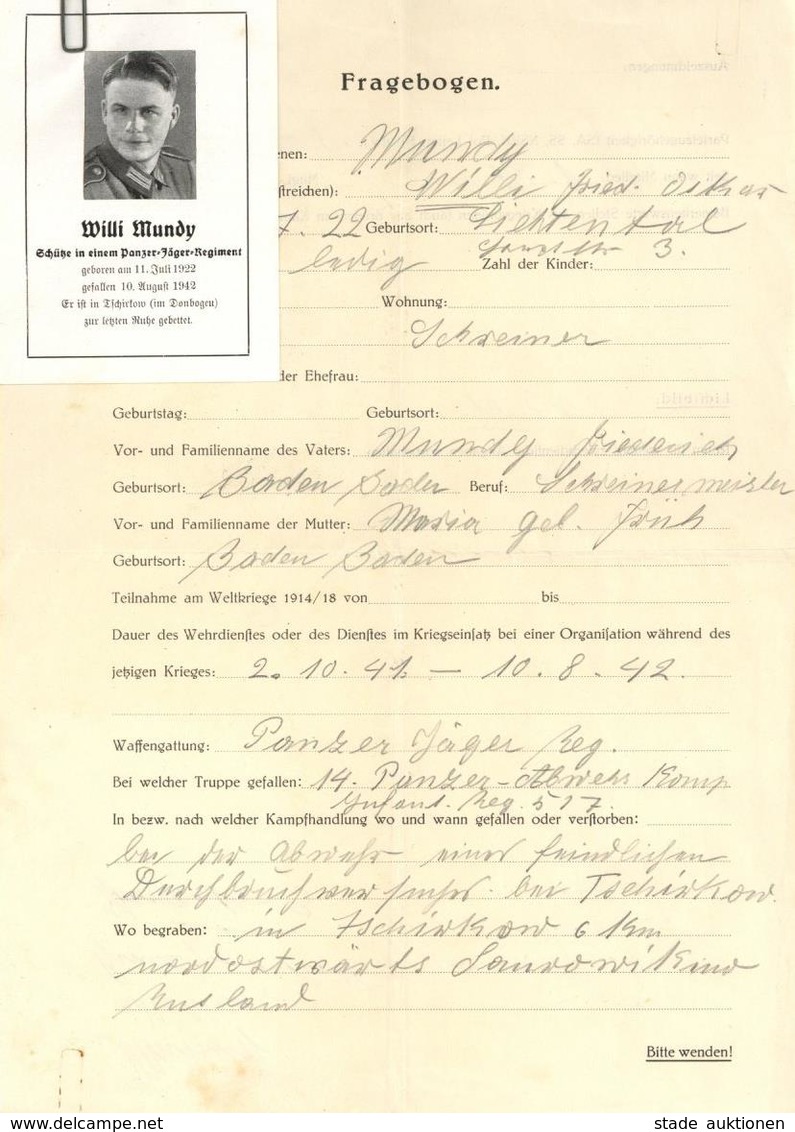 Fragebogen.
Willi Mundy
Schütze in einem Panzer-Jäger-Regiment
geboren am 11. Juli 1922
gefallen 10. August 1942
Er ist in Tschirkow (im Donbogen)
zur letzten Ruhe gebettet.
enen: Mundy
streichen): Willi Fried. Oskar
7. 22 Geburtsort: Lichtental
3.
ledig Zahl der Kinder:
Wohnung:
Schreiner
der Ehefrau:
Geburtstag: Geburtsort:
Vor- und Familienname des Vaters: Mundy Friederich
Geburtsort: Baden Baden Beruf: Schreinermeister
Vor- und Familienname der Mutter: Maria geb. Früh
Geburtsort: Baden Baden
Teilnahme am Weltkriege 1914/18 von bis
Dauer des Wehrdienstes oder des Dienstes im Kriegseinsatz bei einer Organisation während des
jetzigen Krieges: 2. 10. 41. — 10. 8. 42.
Waffengattung: Panzer Jäger Reg.
Bei welcher Truppe gefallen: 14. Panzer-Abwehr Komp
Infant. Reg. 517.
In bezw. nach welcher Kampfhandlung wo und wann gefallen oder verstorben:
bei der Abwehr eines feindlichen
Durchbruchversuches bei Tschirkow.
Wo begraben: in Tschirkow 6 Km
nordostwärts Surowikino
Rusland
Bitte wenden!
stade auktionen